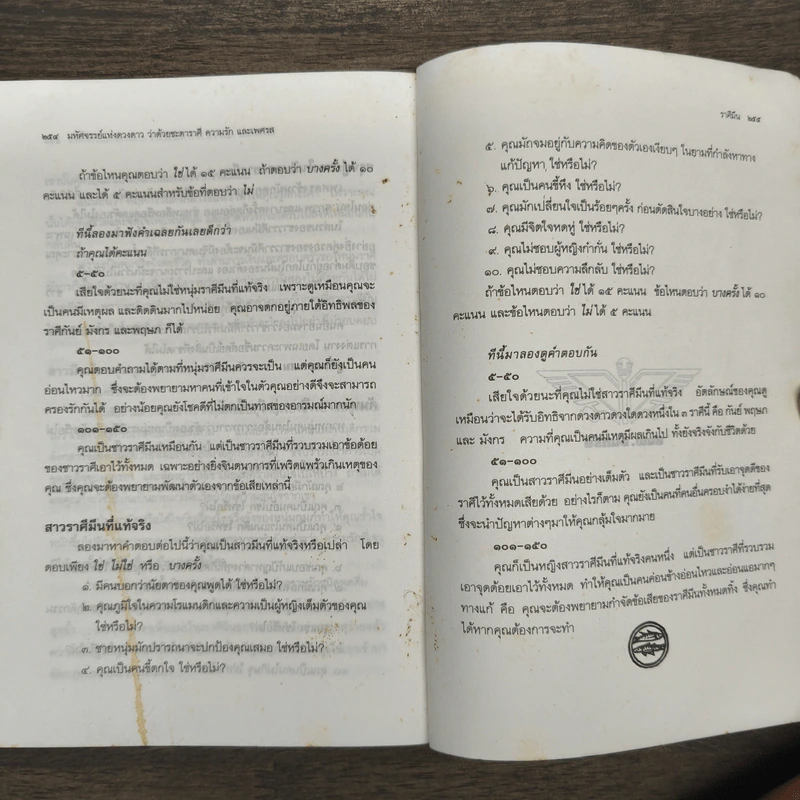 ๒๕๔ มหัศจรรย์แห่งดวงดาว ว่าด้วยชะตาราศี ความรัก และเพศรส
ถ้าข้อไหนคุณตอบว่า ใช่ ได้ ๑๕ คะแนน ถ้าตอบว่า บางครั้ง ได้ ๑๐
คะแนน และได้ ๕ คะแนนสำหรับข้อที่ตอบว่า ไม่
ทีนี้ลองมาฟังคำเฉลยกันเลยดีกว่า
ถ้าคุณได้คะแนน
๕-๕๐
เสียใจด้วยนะที่คุณไม่ใช่หนุ่มราศีมีนที่แท้จริง เพราะดูเหมือนคุณจะ
เป็นคนมีเหตุผล และติดดินมากไปหน่อย คุณอาจตกอยู่ภายใต้อิทธิพลของ
ราศีกันย์ มังกร และพฤษภ ก็ได้
๕๑-๑๐๐
คุณตอบคำถามได้ตามที่หนุ่มราศีมีนควรจะเป็น แต่คุณก็ยังเป็นคน
อ่อนไหวมาก ซึ่งจะต้องพยายามหาคนที่เข้าใจในตัวคุณอย่างดีจึงจะสามารถ
ครองรักกันได้ อย่างน้อยคุณยังโชคดีที่ไม่ตกเป็นทาสของอารมณ์มากนัก
๑๐๑-๑๕๐
คุณเป็นชาวราศีมีนเหมือนกัน แต่เป็นชาวราศีมีนที่รวบรวมเอาข้อด้อย
ของชาวราศีเอาไว้ทั้งหมด เฉพาะอย่างยิ่งจินตนาการที่เพริดแพร้วเกินเหตุของ
คุณ ซึ่งคุณจะต้องพยายามพัฒนาตัวเองจากข้อเสียเหล่านี้
สาวราศีมีนที่แท้จริง
ลองมาหาคำตอบต่อไปนี้ว่าคุณเป็นสาวมีนที่แท้จริงหรือเปล่า โดย
ตอบเพียง ใช่ ไม่ใช่ หรือ บางครั้ง
๑. มีคนบอกว่านัยตาของคุณพูดได้ ใช่หรือไม่?
๒. คุณภูมิใจในความโรแมนติกและความเป็นผู้หญิงเต็มตัวของคุณ
ใช่หรือไม่?
๓. ชายหนุ่มมักปรารถนาจะปกป้องคุณเสมอ ใช่หรือไม่?
๔. คุณเป็นคนขี้ตกใจ ใช่หรือไม่?
ราศีมีน ๒๕๕
๕. คุณมักจมอยู่กับความคิดของตัวเองเงียบๆ ในยามที่กำลังหาทาง
แก้ปัญหา ใช่หรือไม่?
๖. คุณเป็นคนขี้หึง ใช่หรือไม่?
๗. คุณมักเปลี่ยนใจเป็นร้อยๆครั้ง ก่อนตัดสินใจบางอย่าง ใช่หรือไม่?
๘. คุณมีจิตใจหดหู่ ใช่หรือไม่?
๙. คุณไม่ชอบผู้หญิงก๋ากั่น ใช่หรือไม่?
๑๐. คุณไม่ชอบความลึกลับ ใช่หรือไม่?
ถ้าข้อไหนตอบว่า ใช่ ได้ ๑๕ คะแนน ข้อไหนตอบว่า บางครั้ง ได้ ๑๐
คะแนน และข้อไหนตอบว่า ไม่ ได้ ๕ คะแนน
ทีนี้มาลองดูคำตอบกัน
๕-๕๐
เสียใจด้วยนะที่คุณไม่ใช่สาวราศีมีนที่แท้จริง อัตลักษณ์ของคุณดู
เหมือนว่าจะได้รับอิทธิจากดวงดาวดวงใดดวงหนึ่งใน ๓ ราศีนี้ คือ กันย์ พฤษภ
และ มังกร ความที่คุณเป็นคนมีเหตุมีผลเกินไป ทั้งยังจริงจังกับชีวิตด้วย
๕๑-๑๐๐
คุณเป็นสาวราศีมีนอย่างเต็มตัว และเป็นชาวราศีมีนที่รับเอาจุดดีของ
ราศีไว้ทั้งหมดเสียด้วย อย่างไรก็ตาม คุณยังเป็นคนที่คนอื่นครอบงำได้ง่ายที่สุด
ซึ่งจะนำปัญหาต่างๆมาให้คุณกลุ้มใจมากมาย
๑๐๑-๑๕๐
คุณก็เป็นหญิงสาวราศีมีนที่แท้จริงคนหนึ่ง แต่เป็นชาวราศีที่รวบรวม
เอาจุดด้อยเอาไว้ทั้งหมด ทำให้คุณเป็นคนค่อนข้างอ่อนไหวและอ่อนแอมากๆ
ทางแก้ คือ คุณจะต้องพยายามกำจัดข้อเสียของราศีมีนทั้งหมดทิ้ง ซึ่งคุณทำ
ได้หากคุณต้องการจะทำ